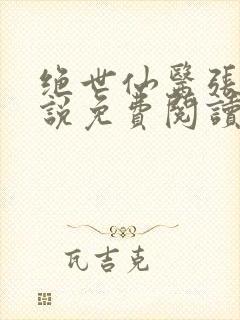 绝世仙醫張
説免費閱讀
瓦吉克